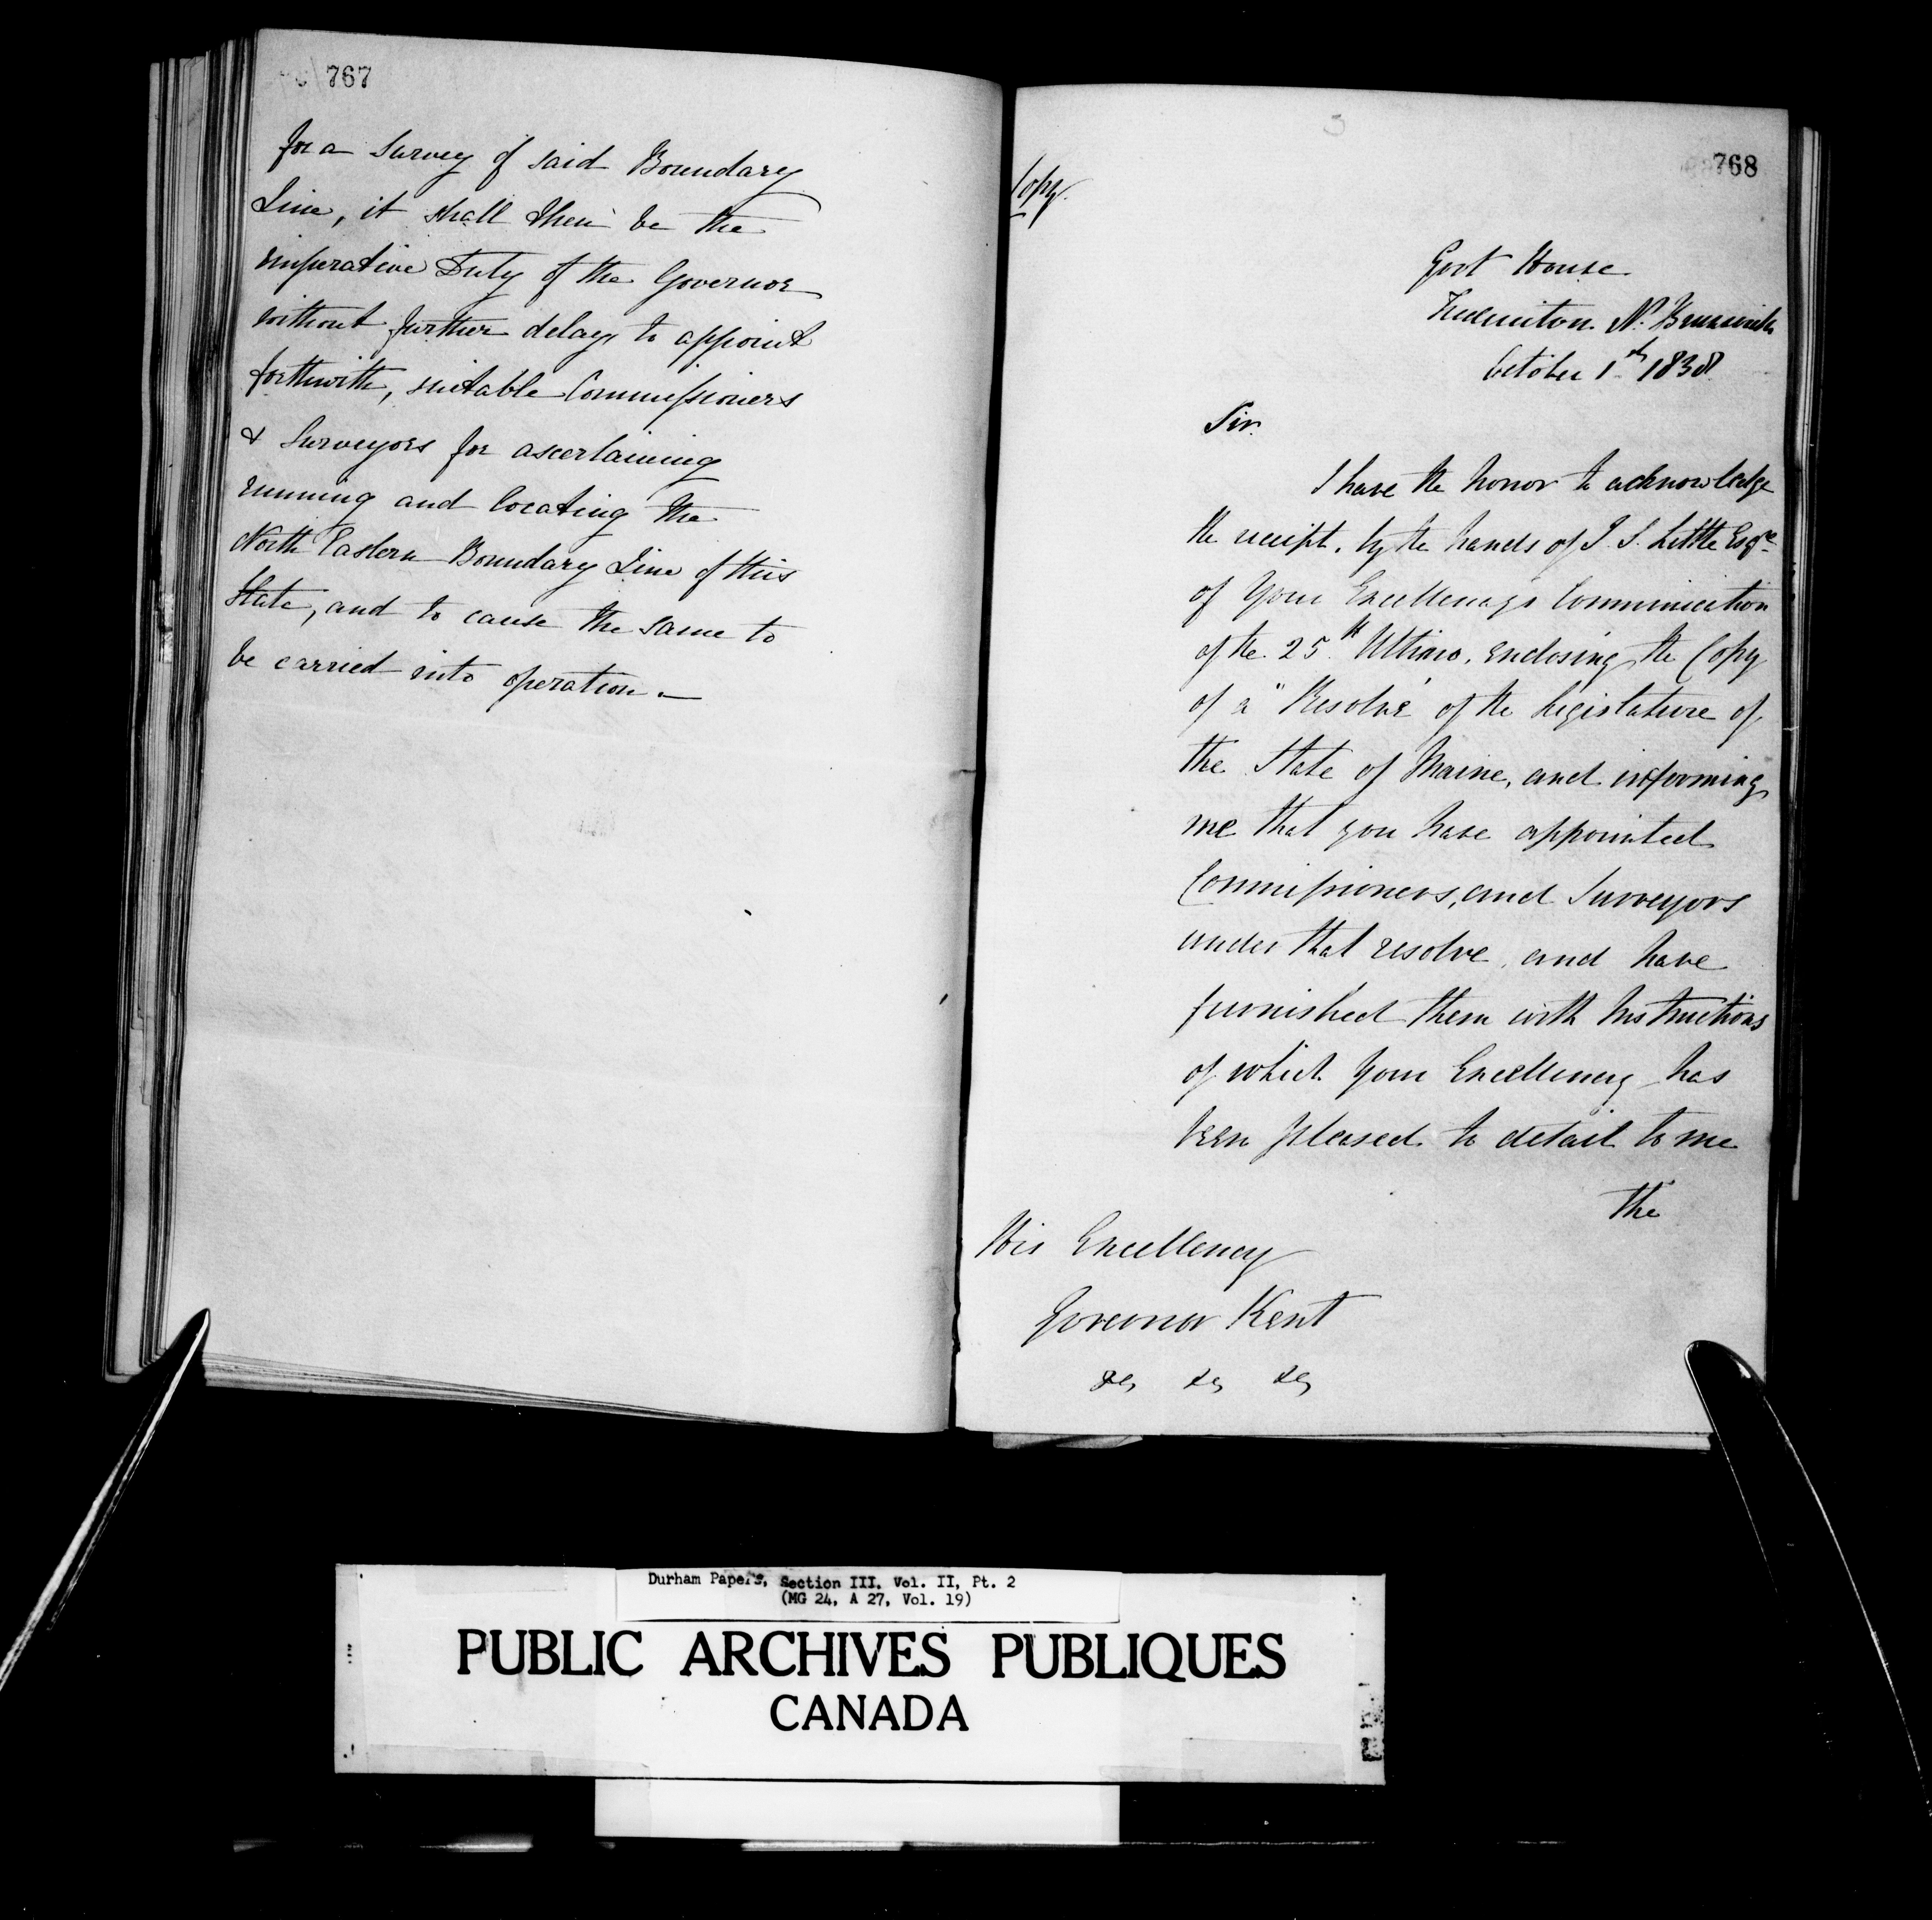 767
for a Survey of said Boundary
Line, it shall then be the
imperative Duty of the Governor
without further delay, to appoint
forthwith, suitable Commissioners
& Surveyors for ascertaining
running and locating the
North Eastern Boundary Line of this
State, and to cause the same to
be carried into operation. —
768
Copy.
Govt House
Fredericton. N. Brunswick
October 1st 1838.
Sir.
I have the honor to acknowledge
the receipt, by the hands of J. S. Little Esqre
of Your Excellency's Communication
of the 25th Ultimo, enclosing the Copy
of a "Resolve" of the Legislature of
the State of Maine, and informing
me that you have appointed
Commissioners, and Surveyors
under that resolve, and have
furnished them with Instructions
of which Your Excellency has
been pleased to detail to me
the
His Excellency
Governor Kent
&c, &c, &c,
Durham Papers, Section III, Vol. II, Pt. 2
(MG 24, A 27, Vol. 19)
PUBLIC ARCHIVES PUBLIQUES
CANADA